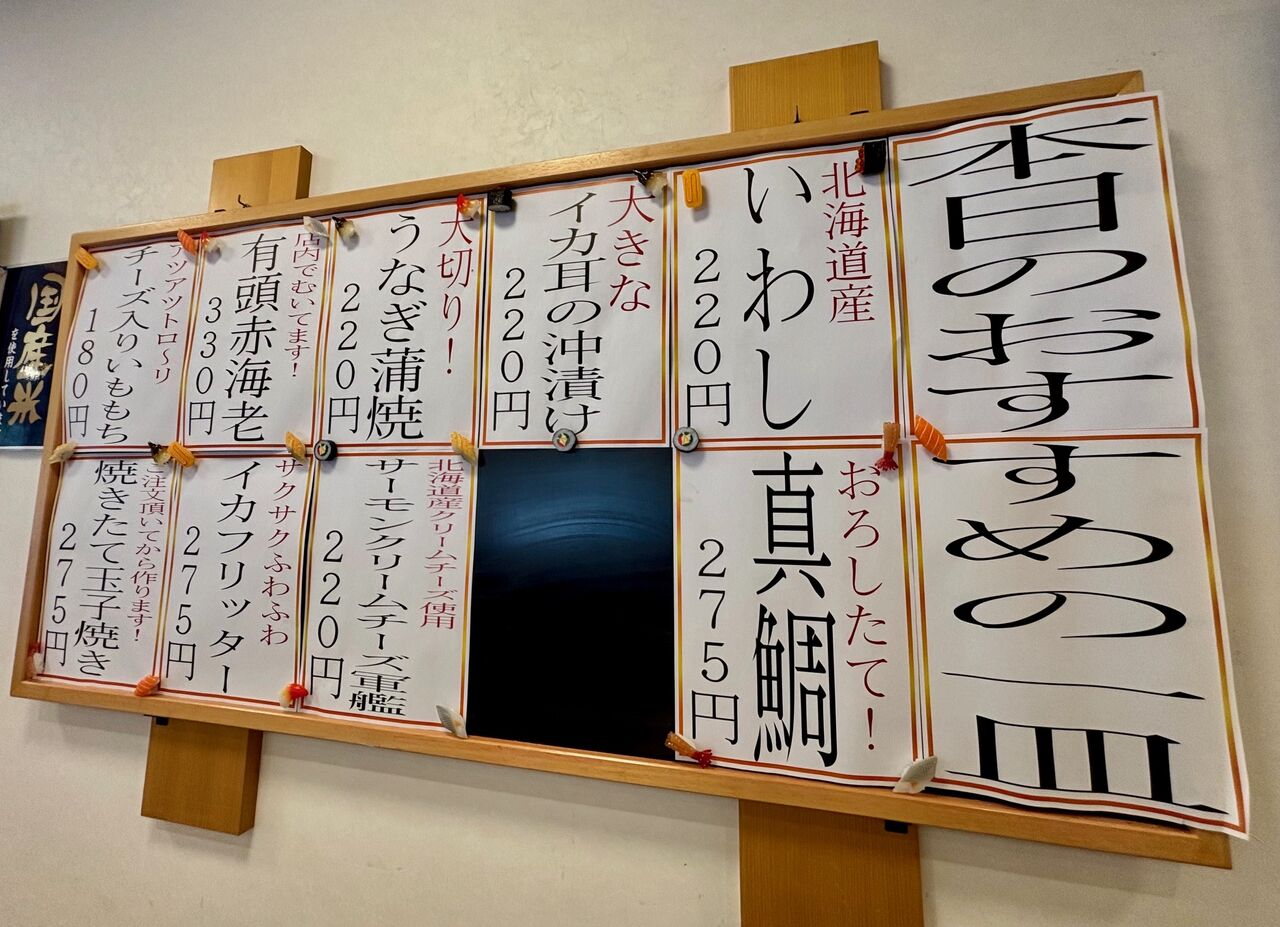 本日のおすすめの一皿
北海道産
いわし
220円
おろしたて！
真鯛
275円
大きな
イカ耳の沖漬け
220円
大切り！
うなぎ蒲焼
220円
北海道産クリームチーズ使用
サーモンクリームチーズ軍艦
220円
店内でむいてます！
有頭赤海老
330円
サクサクふわふわ
イカフリッター
275円
アツアツトロ～リ
チーズ入りいももち
180円
ご注文頂いてから作ります！
焼きたて玉子焼き
275円
国産米
を使用してい